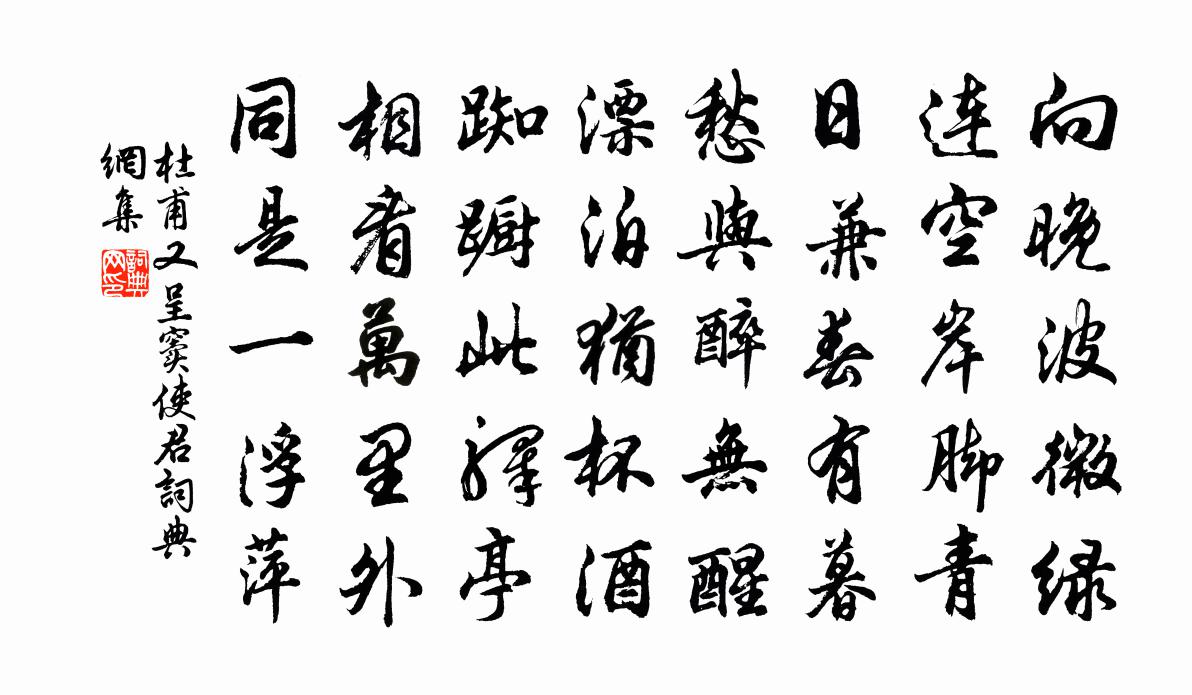 向晚波微緑
連空岸脚青
日兼春有暮
愁與醉無醒
漂泊猶杯酒
踟躕此驛亭
相看萬里外
同是一浮萍
杜甫又呈竇使君詞典
網集
詞典
网印